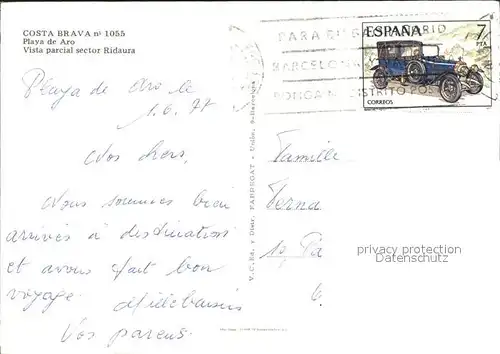 COSTA BRAVA nº 1055
Playa de Aro
Vista parcial sector Ridaura
ESPAÑA 7
PTA
CORREOS
PARA
BARCELONA
PONGA DISTRITO POSTAL
Playa de Aro le
1.6.77
Nos chers,
Nous sommes bien
arrivés à destination
et avons fait bon
voyage. Mille baisers
Vos parents.
V. C. Ed. y Distr. FABREGAT - Unión,
Famille
1a
6.
privacy protection
Datenschutz